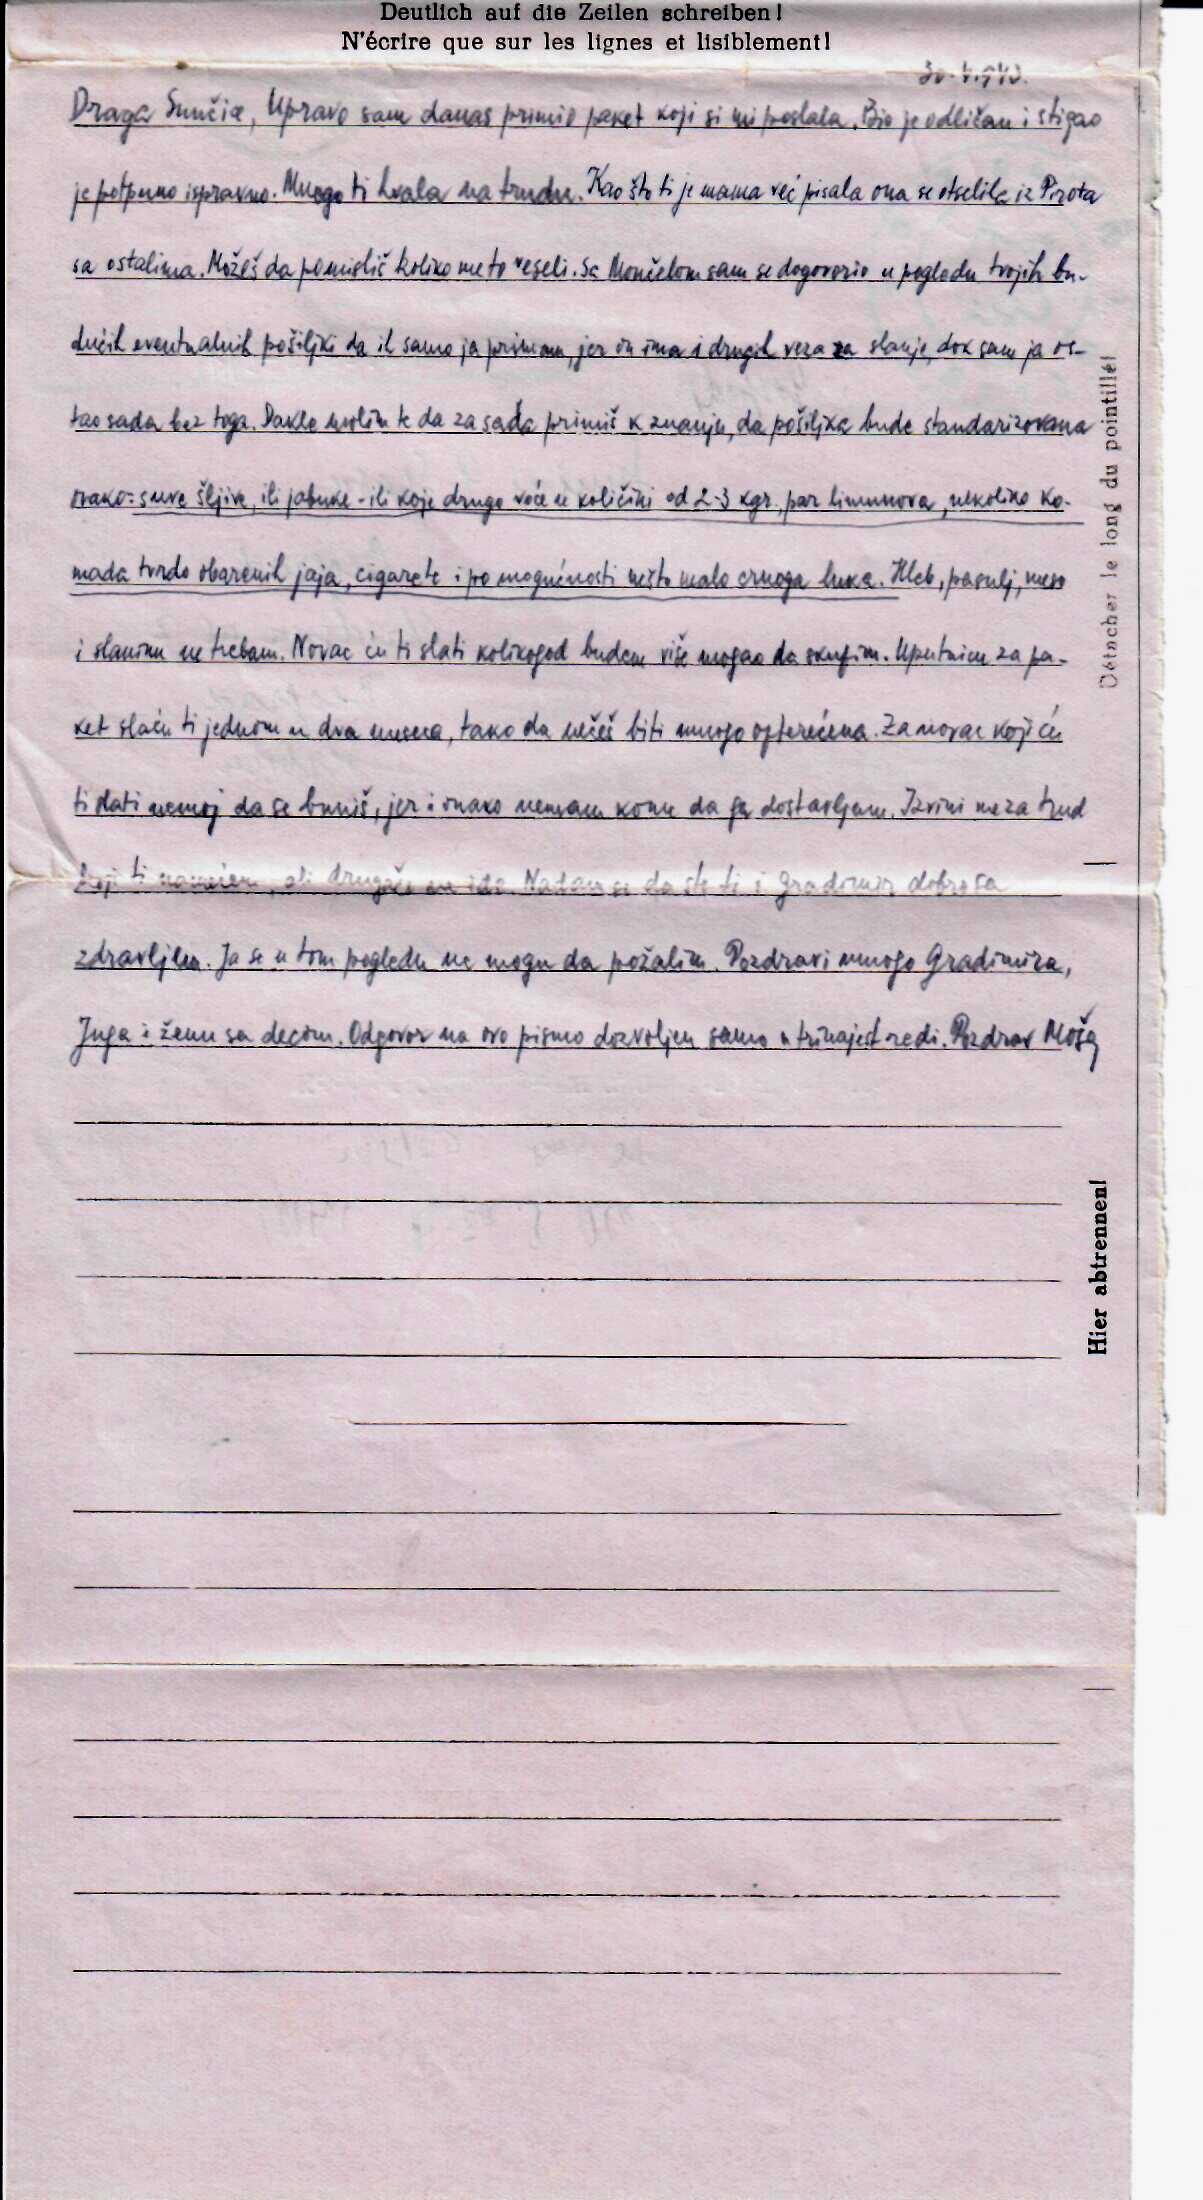 Deutlich auf die Zeilen schreiben!
N'écrire que sur les lignes et lisiblement!
30.V.1943.
Draga Sunčice, Upravo sam danas primio paket koji si mi poslala. Bio je odličan i stigao
je potpuno ispravno. Mnogo ti hvala na trudu. Kao što ti je mama već pisala ona se otselila iz Pirota
sa ostalima. Možeš da pomisliš koliko me to veseli. Sa Mončelom sam se dogovorio u pogledu tvojih bu-
dućih eventualnih pošiljki da ih samo ja primam, jer on ima i drugih veza za slanje, dok sam ja os-
tao sada bez toga. Dakle molim te da za sada primiš k znanju, da pošiljka bude standarizovana
ovako: suve šljive, ili jabuke - ili koje drugo voće u količini od 2-3 kgr., par limunova, nekoliko ko-
mada tvrdo obarenih jaja, cigarete i po mogućnosti nešto malo crnoga luka. Hleb, pasulj, meso
i slaninu ne trebam. Novac ću ti slati kolikogod budem više mogao da skupim. Uputnicu za pa-
ket slaću ti jednom u dva meseca, tako da nećeš biti mnogo opterećena. Za novac koji ću
ti slati nemoj da se buniš, jer i onako nemam kome da ga dostavljam. Izvini me za trud
koji ti namećem, ali drugače ne ide. Nadam se da ste ti i Gradimir dobro sa
zdravljem. Ja se u tom pogledu ne mogu da požalim. Pozdravi mnogo Gradimira,
Juga i ženu sa decom. Odgovor na ovo pismo dozvoljen samo u trinajest redi. Pozdrav Moša
Détacher le long du pointillé!
Hier abtrennen!